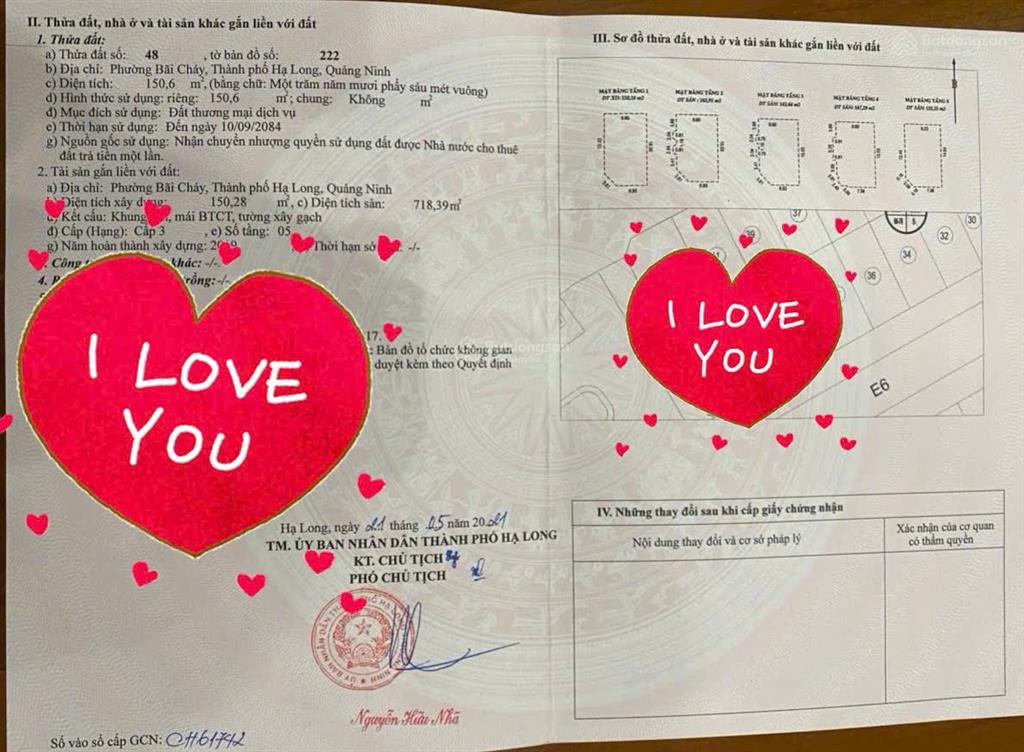 II. Thửa đất, nhà ở và tài sản khác gắn liền với đất
1. Thửa đất:
a) Thửa đất số: 48 , tờ bản đồ số: 222
b) Địa chỉ: Phường Bãi Cháy, Thành phố Hạ Long, Quảng Ninh
c) Diện tích: 150,6 m², (bằng chữ: Một trăm năm mươi phẩy sáu mét vuông)
d) Hình thức sử dụng: riêng: 150,6 m²; chung: Không m²
đ) Mục đích sử dụng: Đất thương mại dịch vụ
e) Thời hạn sử dụng: Đến ngày 10/09/2084
g) Nguồn gốc sử dụng: Nhận chuyển nhượng quyền sử dụng đất được Nhà nước cho thuê
đất trả tiền một lần.
2. Tài sản gắn liền với đất:
a) Địa chỉ: Phường Bãi Cháy, Thành phố Hạ Long, Quảng Ninh
Diện tích xây 150,28 m², c) Diện tích sàn: 718,39 m²
Kết cấu: Khung mái BTCT, tường xây gạch
đ) Cấp (Hạng): Cấp 3 , e) Số tầng: 05
g) Năm hoàn thành xây dựng: Thời hạn -/-
Công khác: -/-
4. trồng: -/-
17.
: Bản đồ tổ chức không gian
duyệt kèm theo Quyết định
I LOVE
YOU
Hạ Long, ngày 21 tháng 05 năm 2021
TM. ỦY BAN NHÂN DÂN THÀNH PHỐ HẠ LONG
KT. CHỦ TỊCH
PHÓ CHỦ TỊCH
Nguyễn Hữu Nhã
Số vào sổ cấp GCN: CH61742
III. Sơ đồ thửa đất, nhà ở và tài sản khác gắn liền với đất
Batdongsan
B
MẶT BẰNG TẦNG 1 MẶT BẰNG TẦNG 2 MẶT BẰNG TẦNG 3 MẶT BẰNG TẦNG 4 MẶT BẰNG TẦNG 5
37 39 30
32
34
36
E6
I LOVE
YOU
IV. Những thay đổi sau khi cấp giấy chứng nhận
Nội dung thay đổi và cơ sở pháp lý
Xác nhận của cơ quan
có thẩm quyền